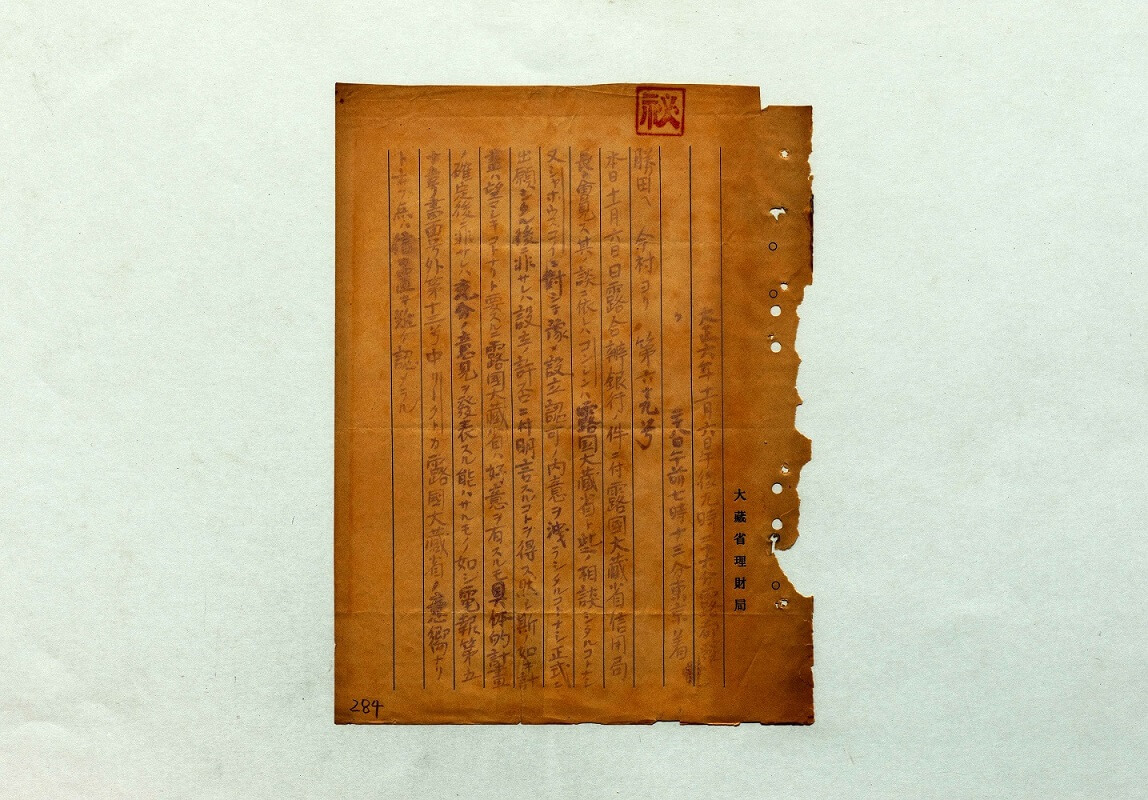 秘
大正六年十一月六日午後九時二十六分露都発
〃 八日午前七時十三分東京着
勝田ヘ 今村ヨリ 第六十九号
本日十一月六日日露合辦銀行ノ件ニ付露國大蔵省信用局
長ト會見ス其ノ談ニ依レハ露国大蔵省ト些ノ相談シタルコトナシ
又ニ對シテ豫メ設立認可ノ内意ヲ洩ラシタルコトナシ正式ニ
出願シタル後ニ非サレハ設立ノ許否ニ付明言スルコトヲ得ス然シ斯ノ如キ計
畫ハ望マシキコトナリト要スルニ露国大蔵省ハ好意ヲ有スルモ具体的計畫
ノ確定後ニ非サレハ充分ノ意見ヲ發表スル能ハサルモノノ如シ電報第五
書面号外第十三号中カ露國大蔵省ノ意嚮ナリ
ト言フ点ハ難ク認メラル
大蔵省理財局
284